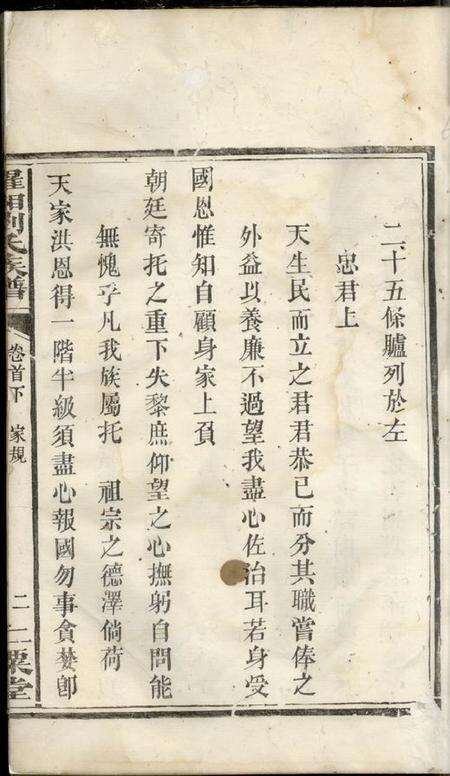 二十五條驢列於左
忠君上
天生民而立之君君恭已而分其職嘗俸之
外益以養廉不過望我盡心佐治耳若身受
國恩惟知自顧身家上負
朝廷寄托之重下失黎庶仰望之心撫躬自問能
無愧乎凡我族屬托 祖宗之德澤倘荷
天家洪恩得一階半級須盡心報國勿事貪婪卽
劉氏族譜
卷首下 家規
二